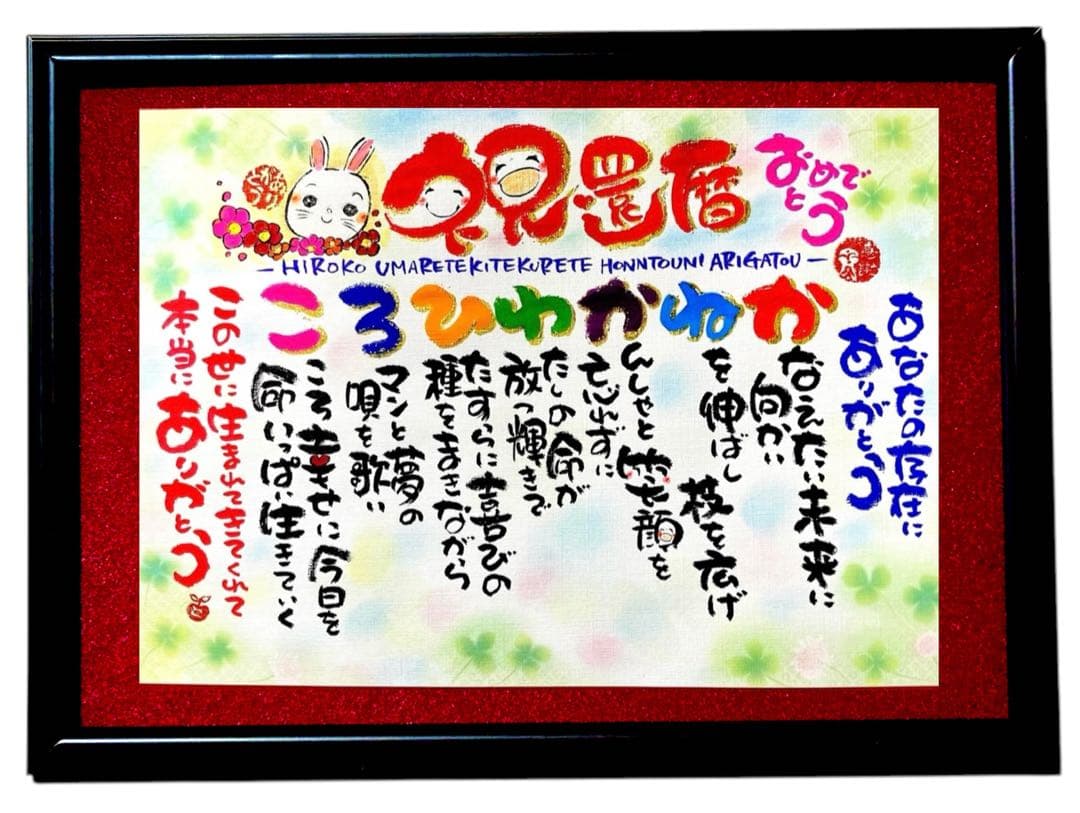 祝還暦
おめでとう
HIROKO UMARETEKITEKURETE HONNTOUNI ARIGATOU
あなたの存在に
ありがとう
かなえたい未来に
向かい
ねを伸ばし
枝を広げ
かんしゃと笑顔を
忘れずに
わたしの命が
放つ輝きで
ひたすらに喜びの
種をまきながら
ろマンと夢の
唄を歌い
こころ幸せに今日を
命いっぱい生きていく
この世に生まれてきてくれて
本当にありがとう